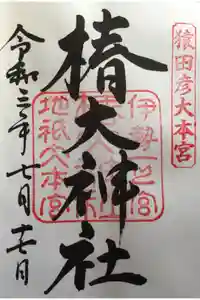 猿田彦大本宮
椿大神社
伊勢一之宮
地祇大本宮
令和三年七月十七日